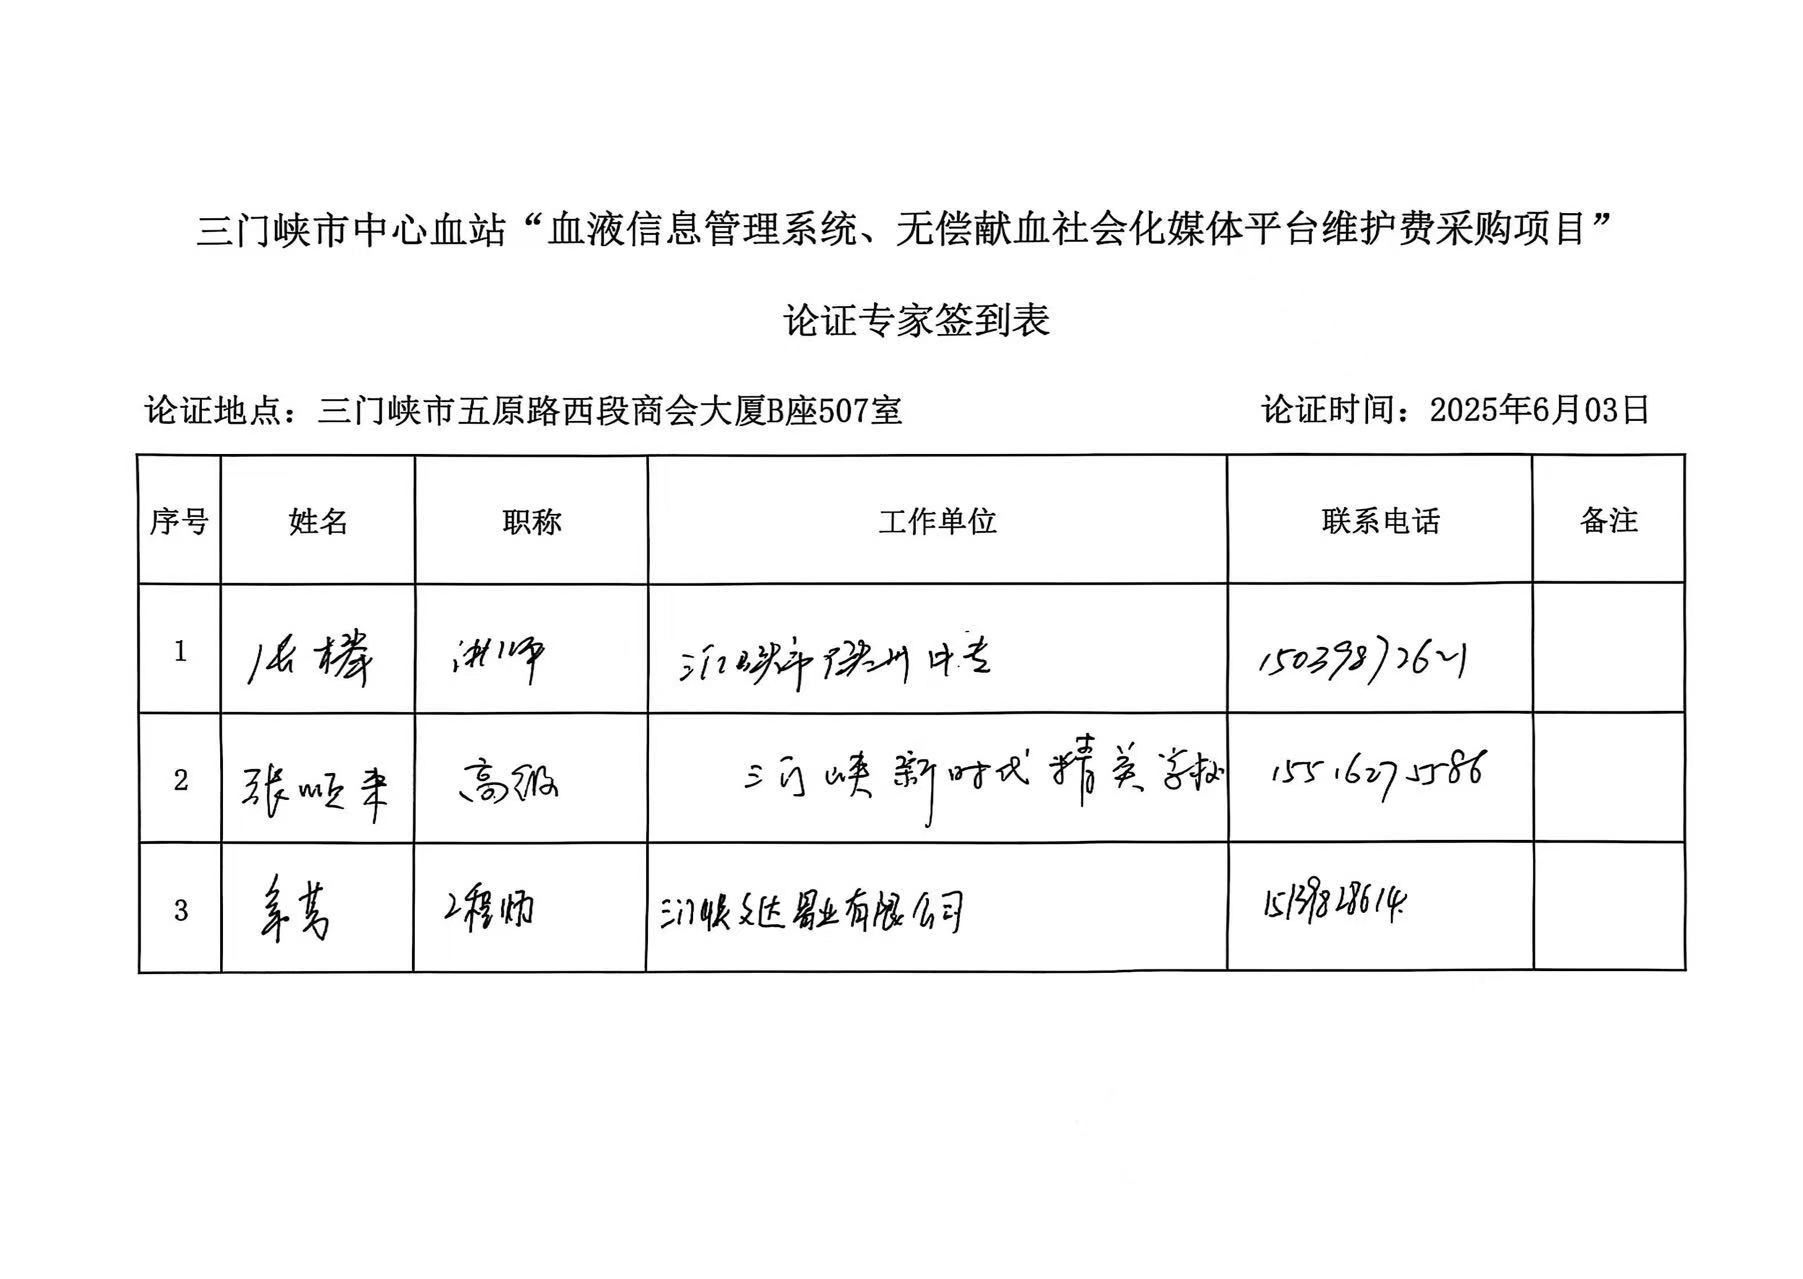 三门峡市中心血站“血液信息管理系统、无偿献血社会化媒体平台维护费采购项目”
论证专家签到表
论证地点：三门峡市五原路西段商会大厦B座507室 论证时间：2025年6月03日
序号 姓名 职称 工作单位 联系电话 备注
1 张 讲师 三门峡市陕州中专 15039872621
2 张顺来 高级 三门峡新时代精英学校 15516275586
3 工程师 三门峡文达置业有限公司 15139828614